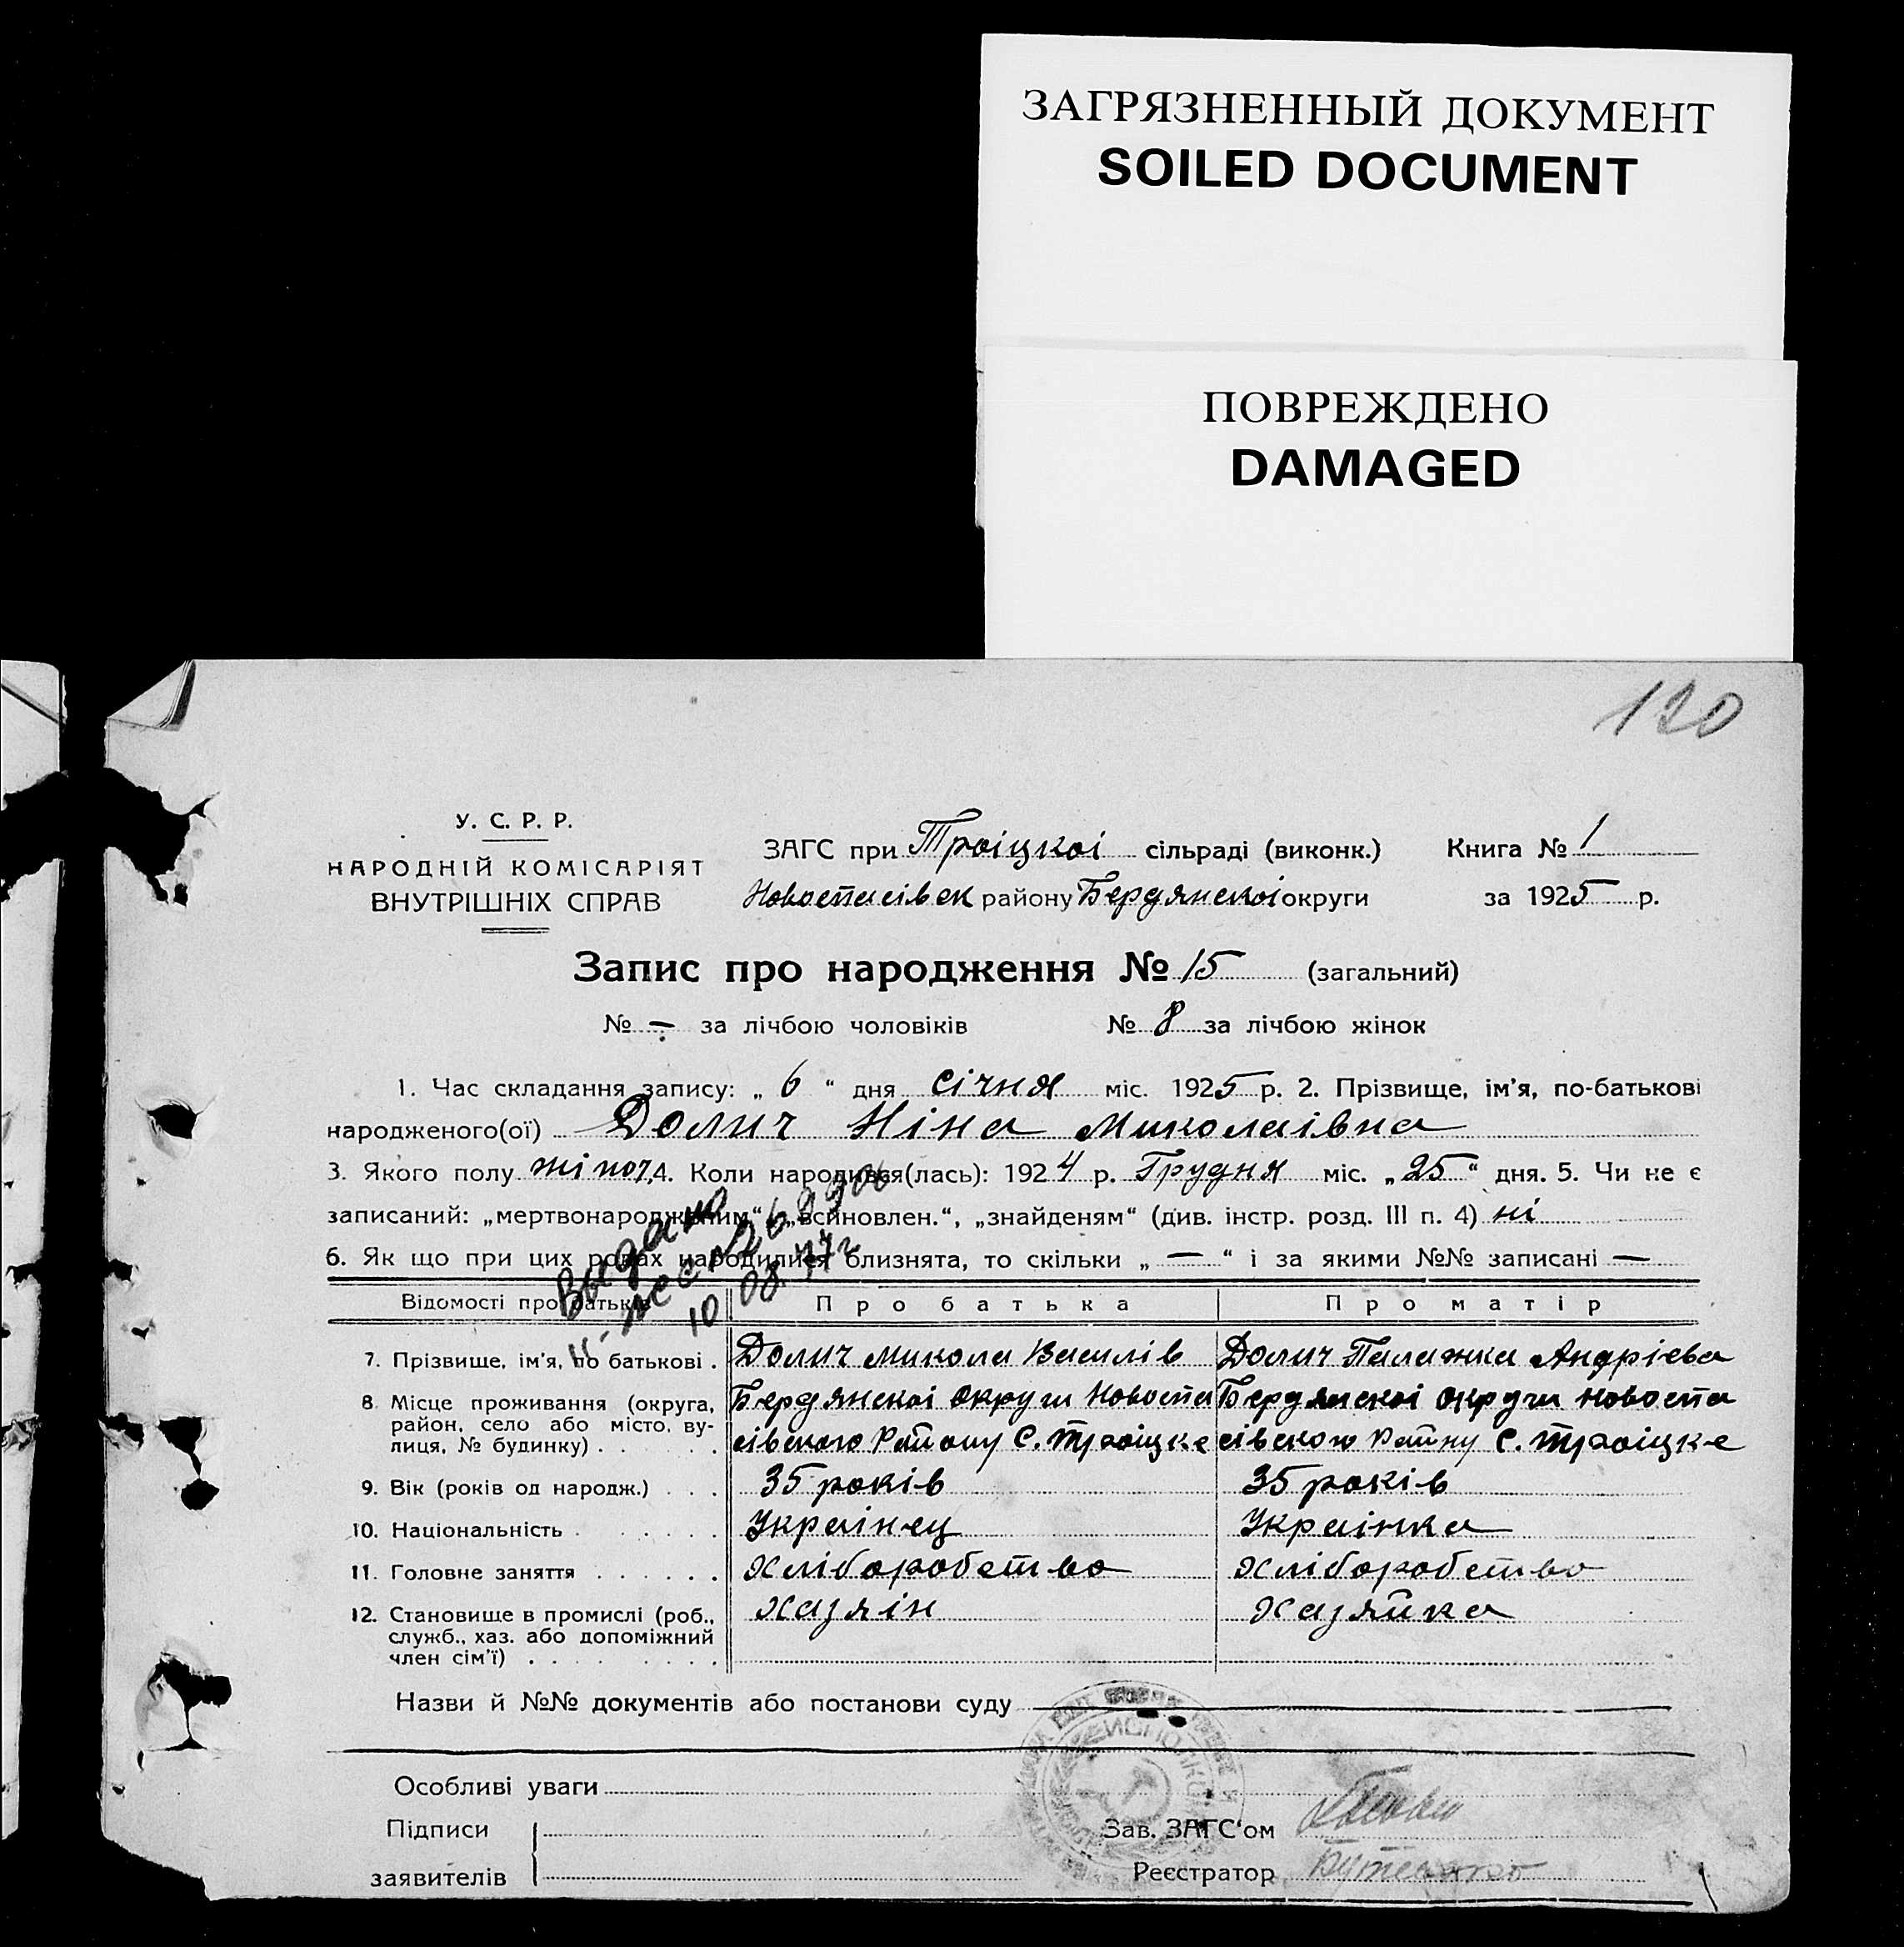 ЗАГРЯЗНЕННЫЙ ДОКУМЕНТ
SOILED DOCUMENT
ПОВРЕЖДЕНО
DAMAGED
120
У. С. Р. Р.
НАРОДНІЙ КОМІСАРІЯТ
ВНУТРІШНІХ СПРАВ
ЗАГС при Троіцкоі сільраді (виконк.) Книга № 1
Новоспасівск району Бердянскоі округи за 1925 р.
Запис про народження № 15 (загальний)
№ — за лічбою чоловіків № 8 за лічбою жінок
1. Час складання запису: „ 6 “ дня січня міс. 1925 р. 2. Прізвище, ім'я, по-батькові
народженого(ої) Долич Ніна Миколаівна
3. Якого полу жіноч. 4. Коли народився(лась): 1924 р. Грудня міс. „25“ дня. 5. Чи не є
записаний: „мертвонародженим“, „всиновлен.“, „знайденям“ (див. інстр. розд. III п. 4) ні
6. Як що при цих родах народилися близнята, то скільки „ — “ і за якими №№ записані —
Выдано
10 08 77г
Відомості про батьків Про батька Про матір
7. Прізвище, ім'я, по батькові . Долич Микола Василів Долич Палажка Андріева
8. Місце проживання (округа, район, село або місто, вулиця, № будинку) . Бердянскоі округи Новоспасівского Району С. Троіцке Бердянскоі округи Новоспасівского Райну С. Троіцке
9. Вік (років од народж.) . . . 35 років 35 років
10. Національність . Украінец Украінка
11. Головне заняття . . . . . . Хліборобство Хліборобство
12. Становище в промислі (роб., служб., хаз. або допоміжний член сім'ї) . Хазяін Хазяйка
Назви й №№ документів або постанови суду
Особливі уваги
Підписи
заявителів
Зав. ЗАГС‘ом
Реєстратор Бутенко